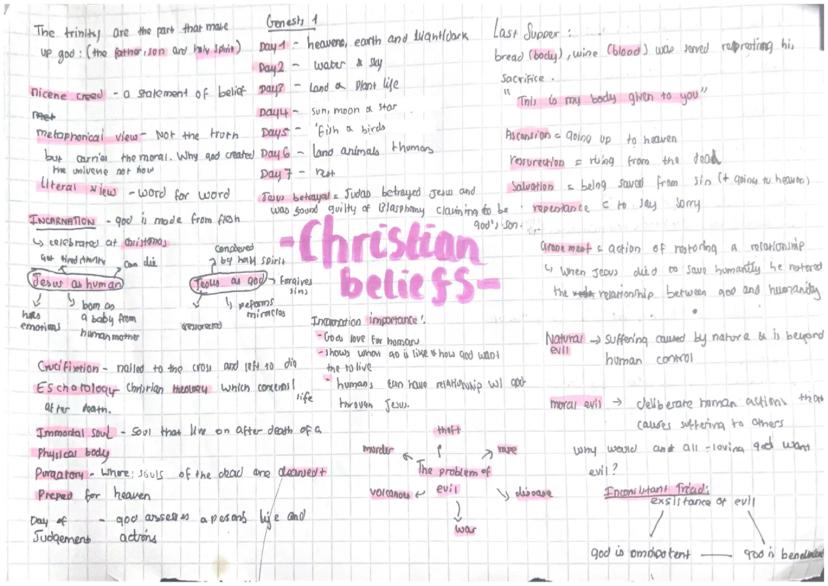 The trinity are the part that make
up god: (the father, son and holy spirit)
nicene creed - a statement of belief
metaphorical view - Not the truth
but carries the moral. Why god created
the universe not how
Literal view - word for word
INCARNATION - god is made from flesh
↳ celebrated at christmas
get tired & hungry
can die
Jesus as human
has
emotions
born as
a baby from
human mother
conceived
by holy spirit
Jesus as god
forgives
sins
performs
miracles
resurrected
Crucifixtion - nailed to the cross and left to die
Eschatology - Christian theology which concerns life
after death.
Immortal soul - Soul that live on after death of a
Physical body
Purgatory - where souls of the dead are cleansed &
Preped for heaven
Day of - god assesses a persons life and
Judgement actions
Genesis 1
Day 1 - heavens, earth and light/dark
Day 2 - water & sky
Day 3 - land & plant life
Day 4 - sun, moon & star
Day 5 - fish & birds
Day 6 - land animals & humans
Day 7 - rest
Jesus betrayal = Judas betrayed Jesus and
was found guilty of Blasphemy claiming to be
god's son.
-Christian
beliefs-
Incarnation importance:
- Gods love for humans
- shows whom go is like & how god want
the to live
- humans can have relationship w/ god
through Jesus.
theft
murder
rape
The problem of
evil
volcanoes
disease
war
Last Supper:
bread (body), wine (blood) was served his
sacrifice.
"This is my body given to you"
Ascension = going up to heaven
resurection = rising from the dead
Salvation = being saved from sin (+ going to heaven)
repentance = to say sorry
atonement = action of restoring a relationship
↳ when Jesus died to save humanity he restored
the relationship between god and humanity
Natural → suffering caused by nature & is beyond
evil human control
moral evil → deliberate human actions that
causes suffering to others
why would and all-loving god want
evil?
Inconsistant Triad:
exsistance of evil
god is omnipotent
god is benevolent